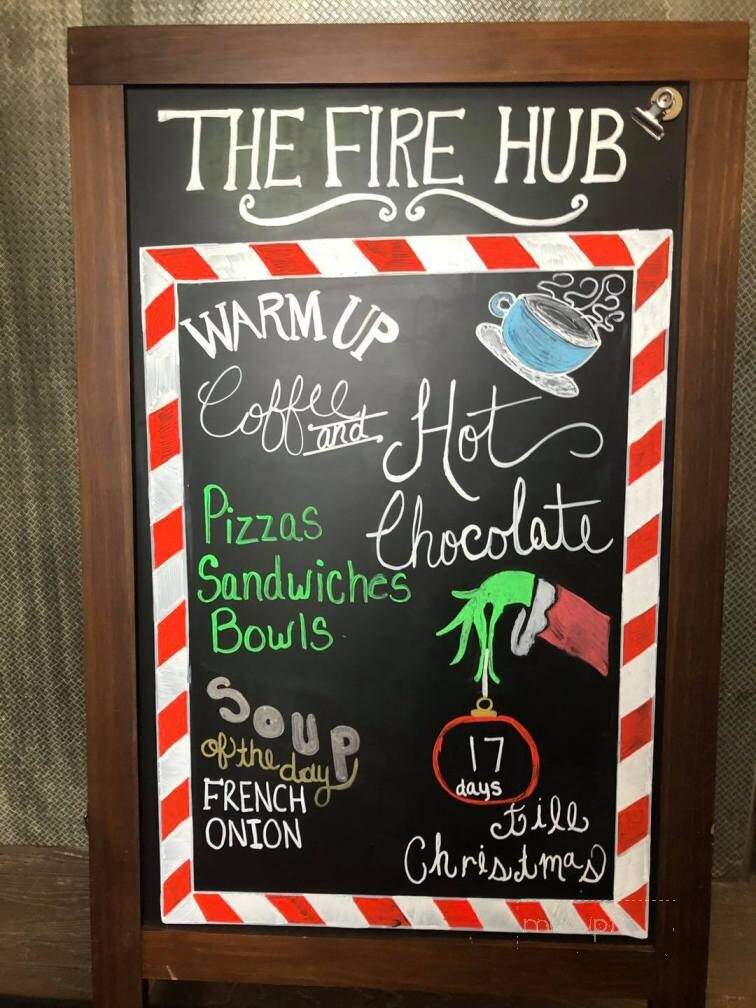 THE FIRE HUB
WARM UP
Coffee and Hot
Chocolate
Pizzas
Sandwiches
Bowls
SOUP
of the day
FRENCH
ONION
17
days
till
Christmas